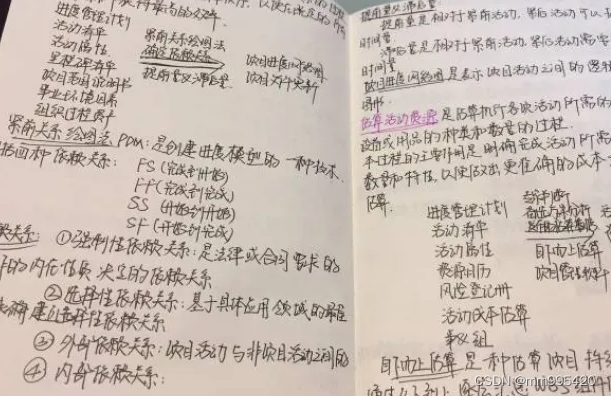 进度管理计划
活动清单
活动属性
里程碑清单
项目范围说明书
事业环境因素
组织过程资产
紧前关系绘图法
确定依赖关系
提前量与滞后量
项目进度网络图
项目文件更新
紧前关系绘图法 PDM: 是创建进度模型的一种技术.
括四种依赖关系:
FS (完成到开始)
FF (完成到完成)
SS (开始到开始)
SF (开始到完成)
赖关系: ①强制性依赖关系: 是法律或合同要求的
的内在性质决定的依赖关系
②选择性依赖关系: 基于具体应用领域的最佳
建立选择性依赖关系
③ 外部依赖关系: 项目活动与非项目活动之间的
④ 内部依赖关系:
提前量与滞后量
提前量是相对于紧前活动, 紧后活动可以
时间量.
滞后量是相对于紧前活动, 紧后活动需
时间量
项目进度网络图是表示项目活动之间的逻辑
图形
估算活动资源是估算执行各项活动所需的
设备或用品的种类和数量的过程.
本过程的主要作用是明确完成活动所需
数量和特性, 以便做出更准确的成本
估算.
进度管理计划
活动清单
活动属性
资源日历
风险登记册
活动成本估算
事 组
专家判断
备选方案分析
自下而上估算
项目管理软件
自下而上估算是一种估算项目持续
CSDN @mm995420